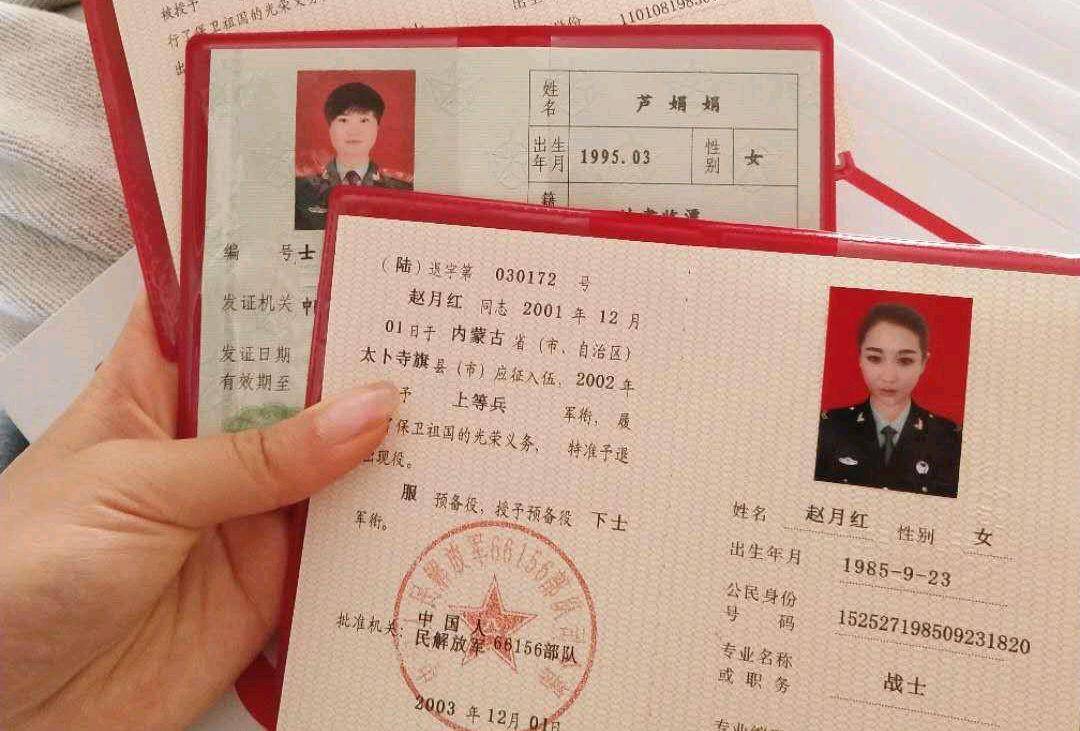 被授予
行了保卫祖国的光荣义务
出
身份
姓名 芦娟娟
出生年月 1995.03 性别 女
籍
编 号 士
发证机关 中
发证日期
有效期至
(陆)退字第 030172 号
赵月红 同志 2001 年 12 月
01 日于 内蒙古 省（市、自治区）
太卜寺旗 县（市）应征入伍，2002 年
予 上等兵 军衔，履
了保卫祖国的光荣义务， 特准予退
出现役。
服 预备役，授予预备役 下士
军衔。
民解放军66156部队
批准机关：中国人
民解放军 66156部队
2003 年 12月 01日
姓名 赵月红 性别 女
出生年月 1985-9-23
公民身份
号 码 152527198509231820
专业名称
或 职 务 战士
专业编